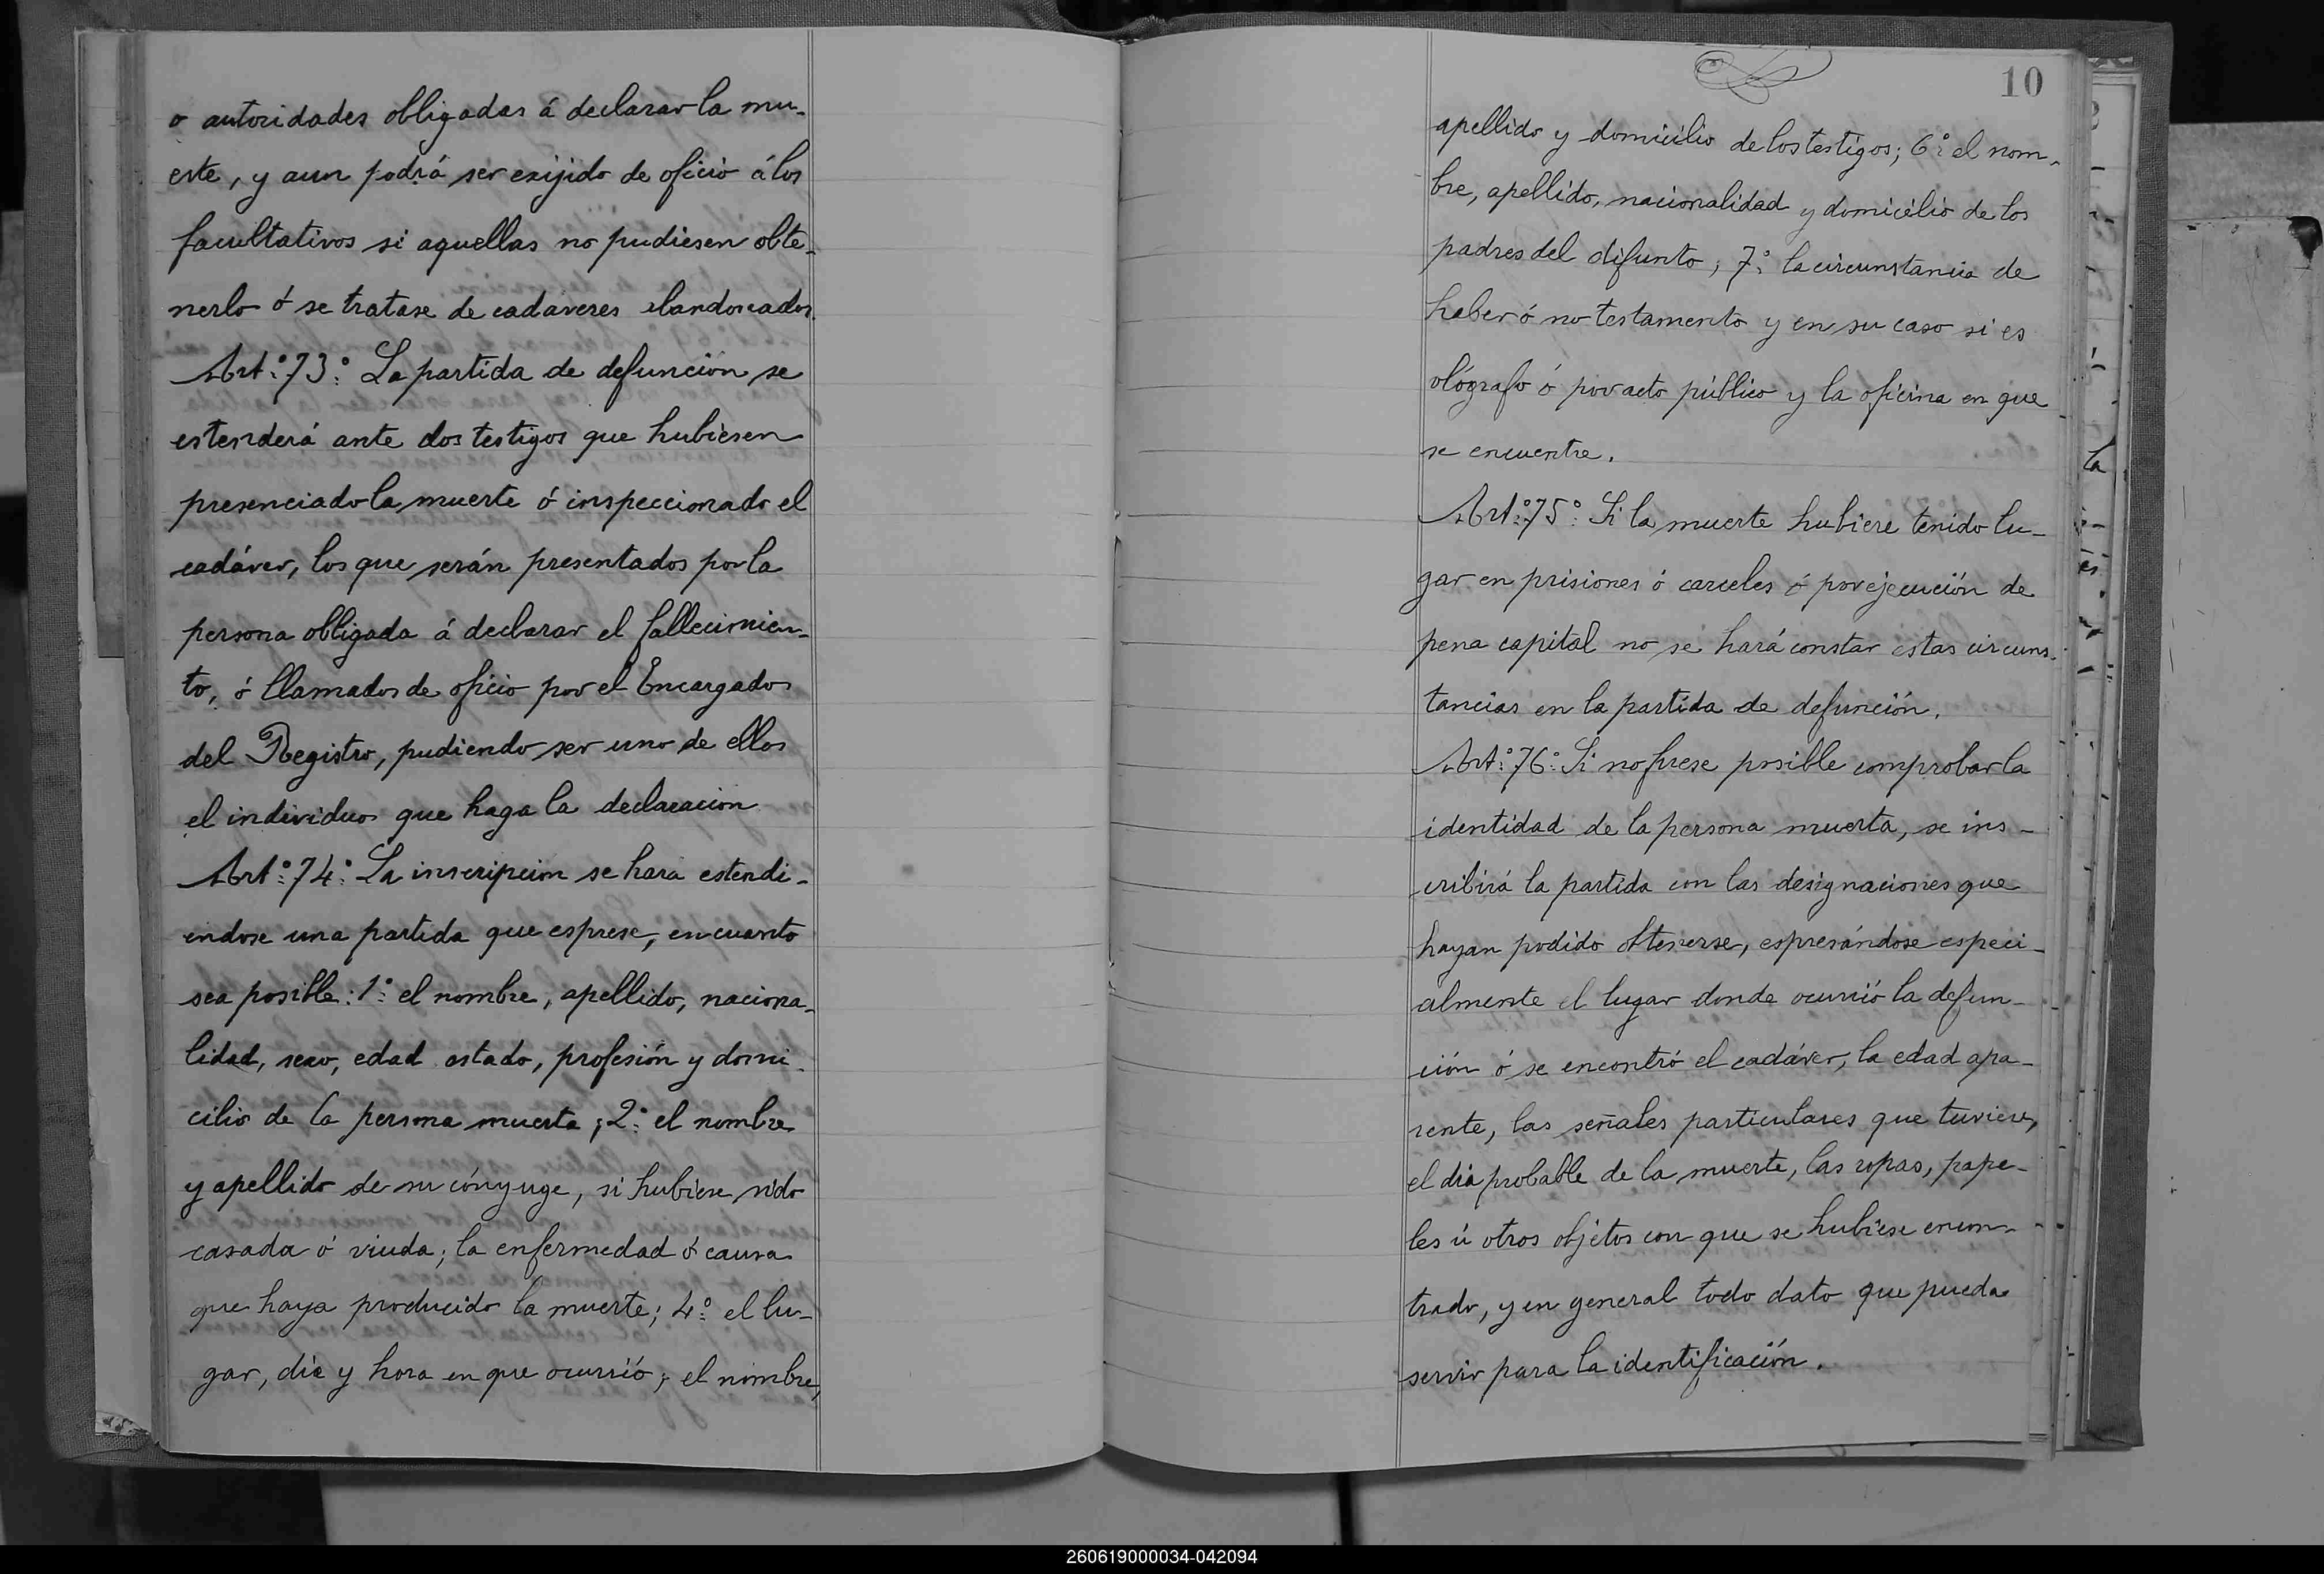 o autoridades obligadas á declarar la mu-
erte, y aun podrá ser exijido de oficio á los
facultativos si aquellas no pudiesen obte-
nerlo ó se tratase de cadaveres abandonados.
Art.º 73.º La partida de defunción se
estenderá ante dos testigos que hubiesen
presenciado la muerte ó inspeccionado el
cadáver, los que serán presentados por la
persona obligada á declarar el fallecimien-
to, ó llamados de oficio por el Encargado
del Registro, pudiendo ser uno de ellos
el individuo que haga la declaracion
Art.º 74.º La inscripcion se hara estendi-
endose una partida que esprese, en cuanto
sea posible: 1.º el nombre, apellido, naciona-
lidad, sexo, edad estado, profesión y domi-
cilio de la persona muerta; 2.º el nombre
y apellido de su cónyuge, si hubiese sido
casada ó viuda; la enfermedad ó causa
que haya producido la muerte; 4.º el lu-
gar, dia y hora en que ocurrió; el nombre,
10
apellido y domicilio de los testigos; 6.º el nom-
bre, apellido, nacionalidad y domicilio de los
padres del difunto; 7.º la circunstancia de
haber ó no testamento y en su caso si es
ológrafo ó por acto público y la oficina en que
se encuentre.
Art.º 75.º Si la muerte hubiere tenido lu-
gar en prisiones ó carceles ó por ejecución de
pena capital no se hará constar estas circuns-
tancias en la partida de defunción.
Art.º 76.º Si no fuese posible comprobar la
identidad de la persona muerta, se ins-
cribirá la partida con las designaciones que
hayan podido obtenerse, espresándose especi-
almente el lugar donde ocurrió la defun-
ción ó se encontró el cadáver, la edad apa-
rente, las señales particulares que tuviere,
el dia probable de la muerte, las ropas, pape-
les ú otros objetos con que se hubiese encon-
trado, y en general todo dato que pueda
servir para la identificación.
260619000034-042094